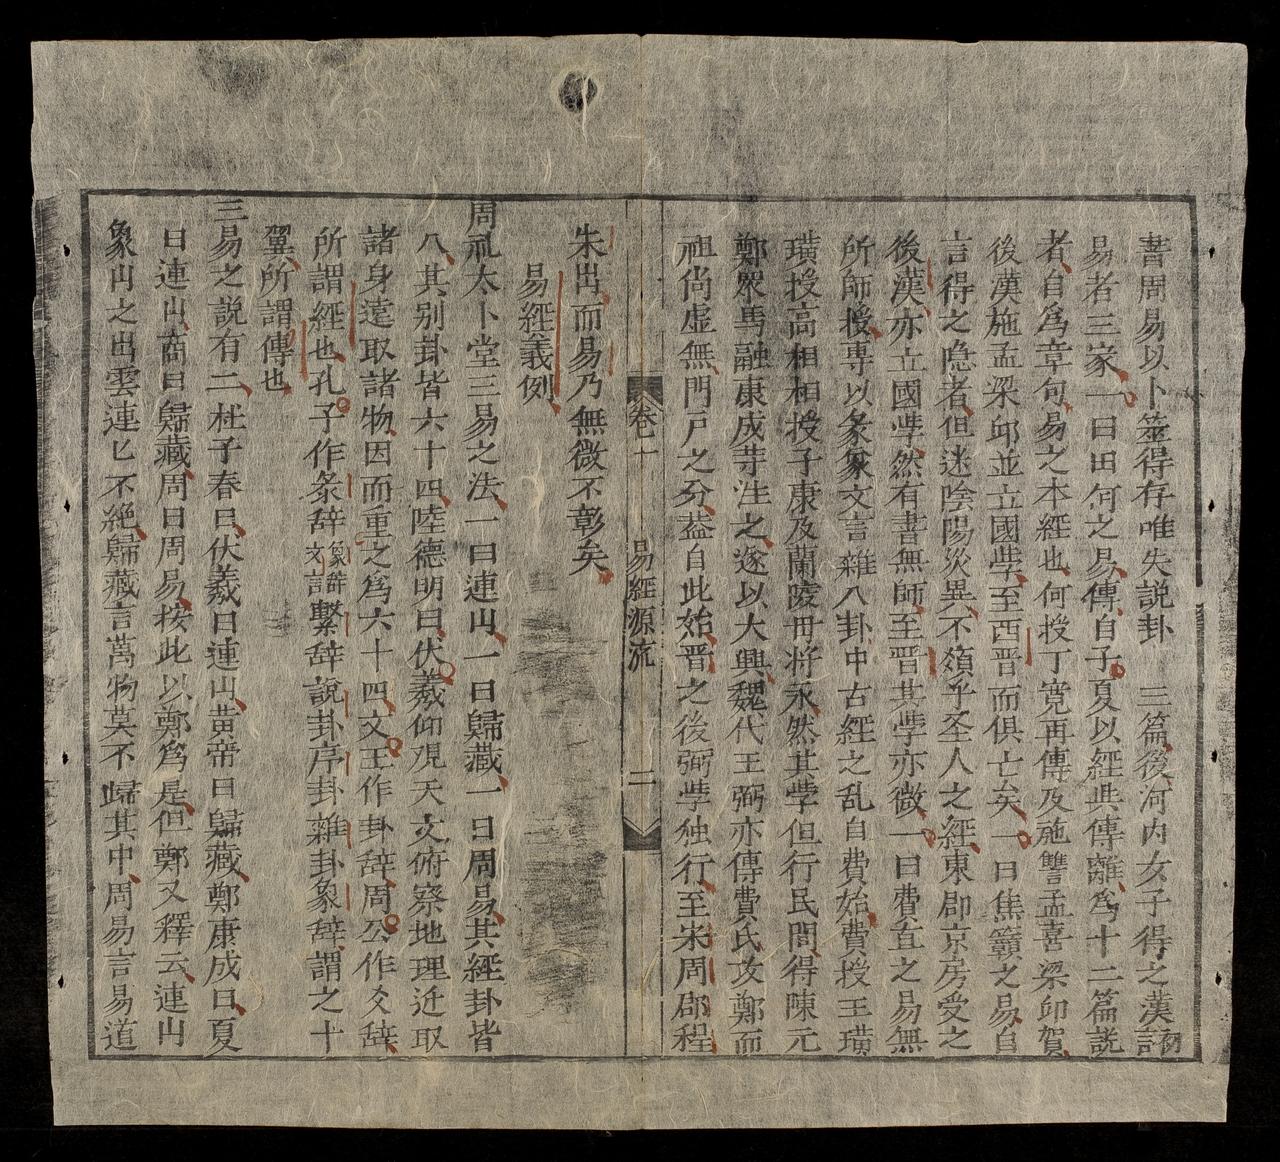 書周易以卜筮得存唯失説卦 三篇後河内女子得之漢初
易者三家一曰田何之易傳自子夏以經與傳離爲十二篇説
者自爲章句易之本經也何授丁寛再傳及施讐孟喜梁邱賀
後漢施孟梁邱並立國學至西晋而俱亡矣一曰焦贛之易自
言得之隐者但迷陰陽災異不類乎圣人之經東郡京房受之
後漢亦立國學然有書無師至晋其學亦微一曰費直之易無
所師授專以彖象文言雜八卦中古經之乱自費始費授王璜
璜授高相相授子康及蘭陵毋将永然其學但行民間得陳元
鄭衆馬融康成䓁注之遂以大興魏代王弼亦傳費氏友鄭而
祖尚虚無門戸之分葢自此始晋之後弼學独行至宋周郡程
朱出而易乃無微不彰矣
易經義例
周礼太卜堂三易之法一曰連山一曰歸藏一曰周易其經卦皆
八其别卦皆六十四陸德明曰伏羲仰观天文俯察地理近取
諸身遠取諸物因而重之爲六十四文王作卦辞周公作爻辞
所謂經也孔子作彖辞象辞文言繫辞說卦序卦雜卦彖辞謂之十
翼所謂傳也
三易之説有二杜子春曰伏羲曰連山黄帝曰歸藏鄭康成曰夏
曰連山商曰歸藏周曰周易按此以鄭爲是但鄭又釋云連山
象山之出雲連匕不絶歸藏言萬物莫不歸其中周易言易道
卷十
易經源流
二